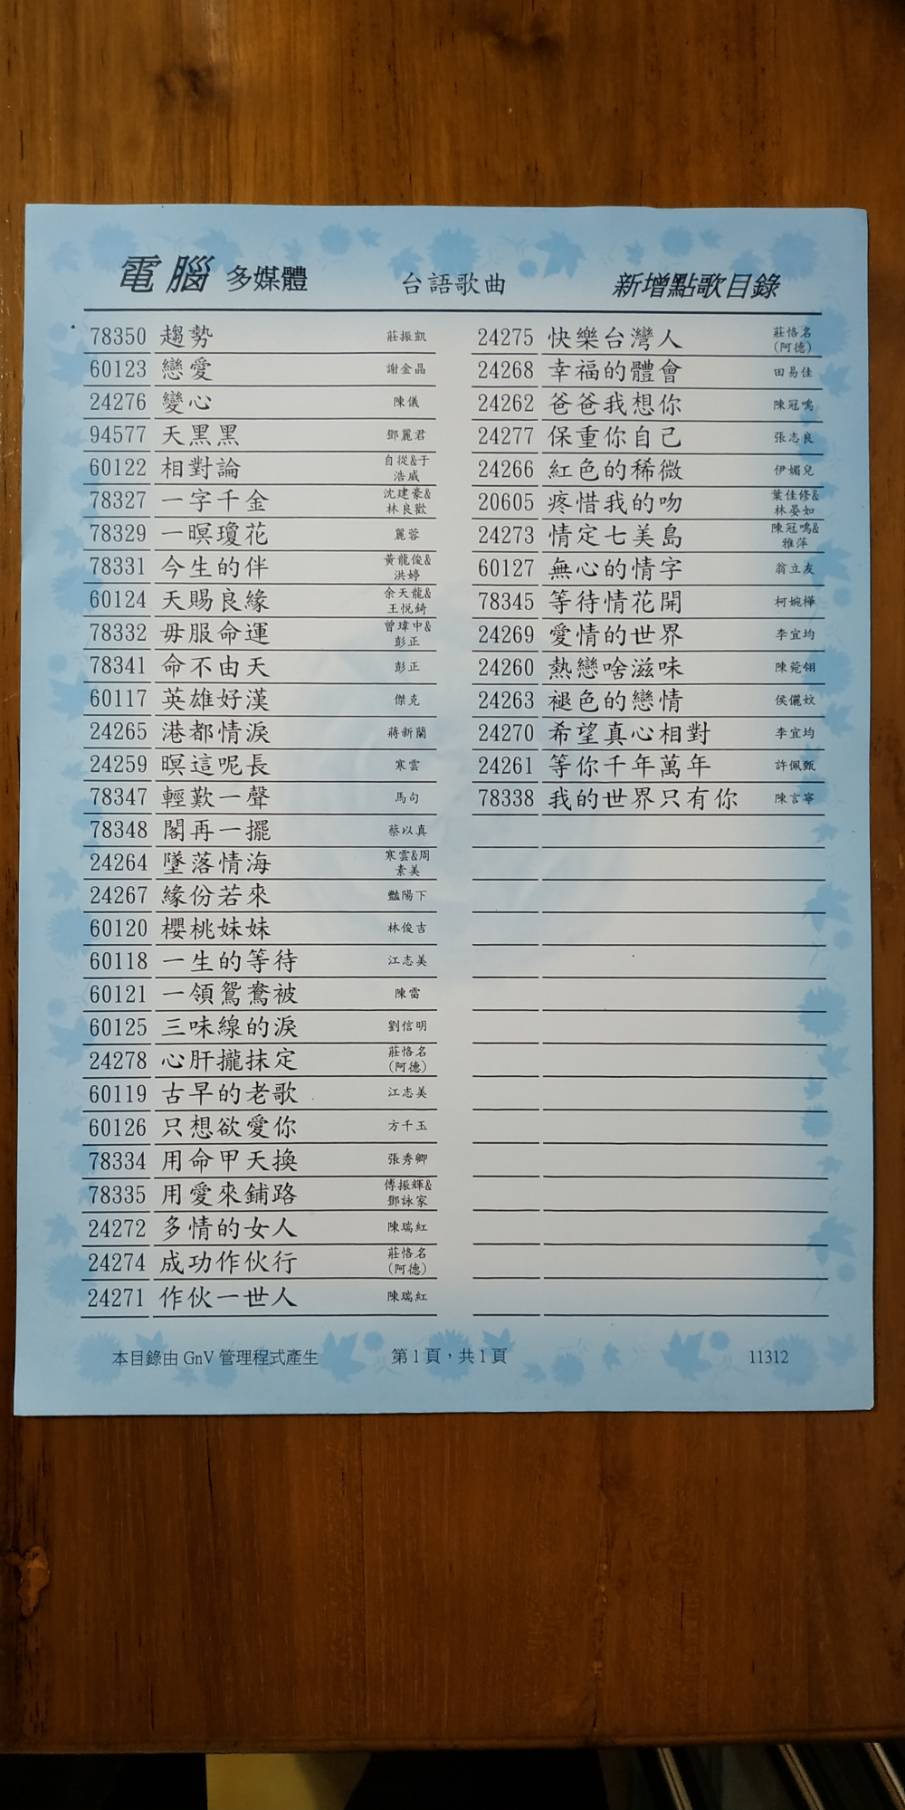 電腦 多媒體 台語歌曲 新增點歌目錄
78350 趨勢 莊振凱
60123 戀愛 謝金晶
24276 變心 陳儀
94577 天黑黑 鄧麗君
60122 相對論 自從&于浩威
78327 一字千金 沈建豪&林良歡
78329 一暝瓊花 麗蓉
78331 今生的伴 黃龍俊&洪婷
60124 天賜良緣 余天龍&王悅錡
78332 毋服命運 曾瑋中&彭正
78341 命不由天 彭正
60117 英雄好漢 傑克
24265 港都情淚 蔣新蘭
24259 暝這呢長 寒雲
78347 輕歎一聲 馬向
78348 閣再一擺 蔡以真
24264 墜落情海 寒雲&周素美
24267 緣份若來 豔陽下
60120 櫻桃妹妹 林俊吉
60118 一生的等待 江志美
60121 一領鴛鴦被 陳雷
60125 三味線的淚 劉信明
24278 心肝攏抹定 莊恪名(阿德)
60119 古早的老歌 江志美
60126 只想欲愛你 方千玉
78334 用命甲天換 張秀卿
78335 用愛來鋪路 傅振輝&鄧詠家
24272 多情的女人 陳瑞紅
24274 成功作伙行 莊恪名(阿德)
24271 作伙一世人 陳瑞紅
24275 快樂台灣人 莊恪名(阿德)
24268 幸福的體會 田易佳
24262 爸爸我想你 陳冠鳴
24277 保重你自己 張志良
24266 紅色的稀微 伊媚兒
20605 疼惜我的吻 葉佳修&林晏如
24273 情定七美島 陳冠鳴&雅萍
60127 無心的情字 翁立友
78345 等待情花開 柯婉樺
24269 愛情的世界 李宜均
24260 熱戀啥滋味 陳菀翎
24263 褪色的戀情 侯儷妏
24270 希望真心相對 李宜均
24261 等你千年萬年 許佩甄
78338 我的世界只有你 陳言寧
本目錄由 GnV 管理程式產生 第 1 頁，共 1 頁 11312